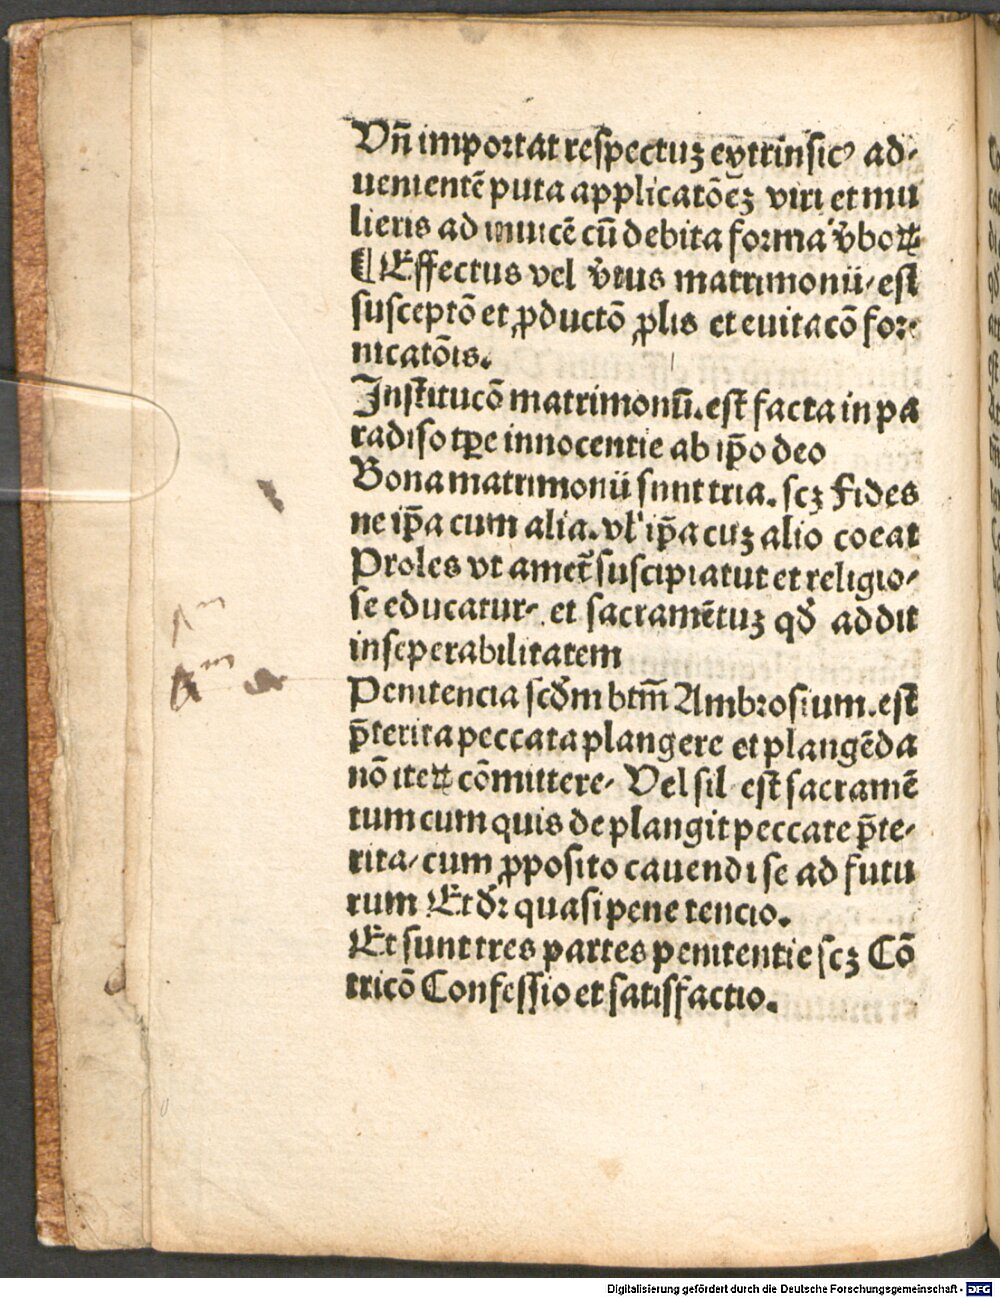 Vn̄ importat respectuʒ extrinsicꝰ ad⸗
uenientē puta applicatōeʒ viri et mu
lieris ad inuicē cū debita forma v̓boꝝ
¶ Effectus vel v̓tus matrimonii/ est
susceptō et ꝓductō ꝓlis et euitacō for⸗
nicatōis.
Institucō matrimonii. est facta in pa
radiso tꝑe innocentie ab ip̄o deo
Bona matrimonii sunt tria. scʒ Fides
ne ip̄a cum alia. vl' ip̄a cuʒ alio coeat
Proles vt amet̄ suscipiatut et religio⸗
se educatur⸗ et sacramētuʒ qd̓ addit
inseperabilitatem
Penitencia scd̓m btm̄ Ambrosium. est
p̄terita peccata plangere et plangēda
nō iteꝝ cōmittere⸗ Vel sil est sacramē
tum cum quis de plangit peccate p̄te⸗
rita/ cum ꝓposito cauendi se ad futu
rum Et d̓r quasi pene tencio.
Et sunt tres partes penitentie scʒ Cō
tricō Confessio et satisfactio.
Digitalisierung gefördert durch die Deutsche Forschungsgemeinschaft - DFG